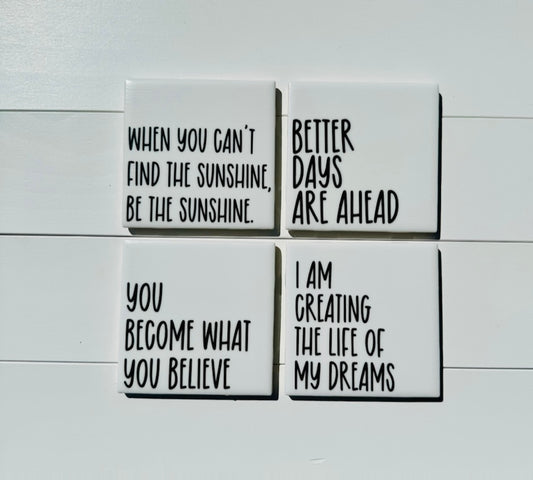 WHEN YOU CAN'T
FIND THE SUNSHINE,
BE THE SUNSHINE.
BETTER
DAYS
ARE AHEAD
YOU
BECOME WHAT
YOU BELIEVE
I AM
CREATING
THE LIFE OF
MY DREAMS